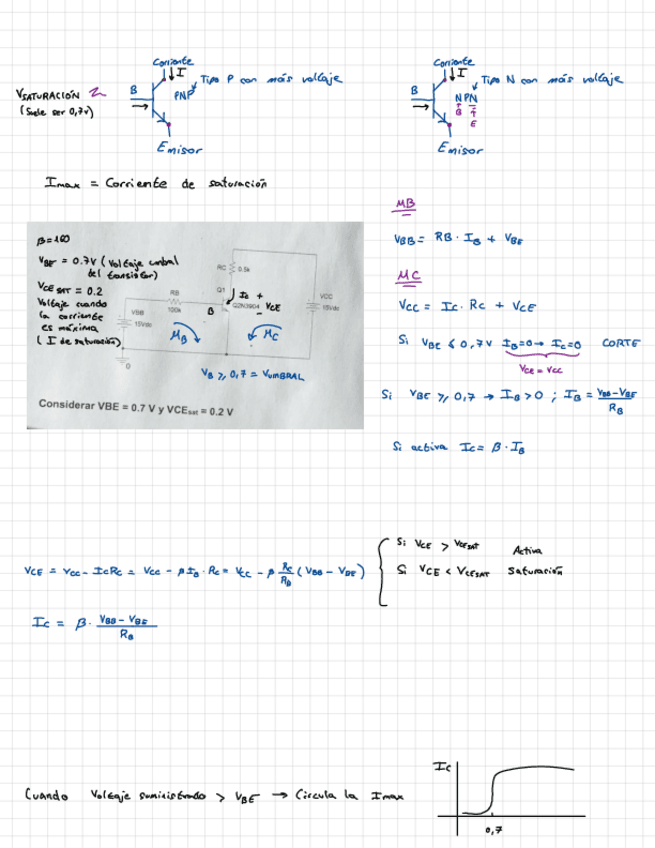 Corriente
I
Tipo P con más voltaje
VSATURACIÓN
(Suele ser 0,7v)
B
PNP
Emisor
Corriente
I
Tipo N con más voltaje
B
NPN
B E
Emisor
Imax = Corriente de saturación
VBE = 0.7V (Voltaje umbral
del transistor)
VCE SAT = 0.2
Voltaje cuando
la corriente
es máxima
(I de saturación)
RC 0.5k
RB
100k
Q1
Q2N3904
B
Ic +
- VCE
VCC
15Vdc
VBB
15Vdc
MB
MC
0
VB ≥ 0,7 = VUMBRAL
Considerar VBE = 0.7 V y VCEsat = 0.2 V
MB
VBB = RB · IB + VBE
MC
VCC = Ic · Rc + VCE
Si VBE ≤ 0,7V IB=0 → Ic=0 CORTE
VCE = VCC
Si VBE ≥ 0,7 → IB > 0 ; IB = VBB-VBE / RB
Si activa Ic = β · IB
VCE = Vcc - IcRc = Vcc - βIB · Rc = Vcc - β Rc/RB (VBB - VBE)
Si VCE > VCESAT Activa
Si VCE < VCESAT Saturación
Ic = β · VBB - VBE / RB
Cuando Voltaje suministrado > VBE → Circula la Imax
Ic
0,7